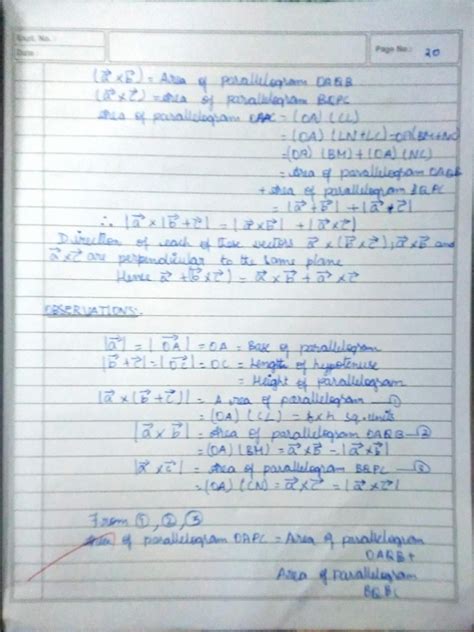 Expt. No.
Date
Page No.: 20
(a⃗ × b⃗) = Area of parallelogram OAQB
(a⃗ × c⃗) = Area of parallelogram BQPC
Area of parallelogram = (OA) (CL)
= (OA) (LN+LC) = OA(BM+NC)
= (OA) (BM) + (OA) (NC)
= Area of parallelogram OAQB
+ Area of parallelogram BQPC
= |a⃗ + b⃗| + |a⃗ + c⃗|
∴ |a⃗ × |b⃗ + c⃗| = |a⃗ × b⃗| + |a⃗ × c⃗)
Direction of each of these vectors a⃗ × (b⃗ × c⃗), a⃗ × b⃗ and
a⃗ × c⃗ are perpendicular to the same plane
Hence a⃗ + (b⃗ × c⃗) = a⃗ × b⃗ + a⃗ × c⃗
OBSERVATIONS:.
|a⃗| = |OA⃗| = OA = Base of parallelogram
|b⃗ + c⃗| = |OC⃗| = OC = Length of hypotenuse
= Height of parallelogram
|a⃗ × (b⃗ + c⃗)| = Area of parallelogram —①
= (OA) (CL) = b×h sq. units
|a⃗ × b⃗| = Area of parallelogram OAQB —②
= (OA) (BM) = a⃗ × b⃗ - |a⃗ × b⃗|
|a⃗ × c⃗| = Area of parallelogram BQPC —③
= (OA) (CN) = a⃗ × c⃗ = |a⃗ × c⃗|
From ①, ②, ③
Area of parallelogram OAPC = Area of parallelogram
OAQB +
Area of parallelogram